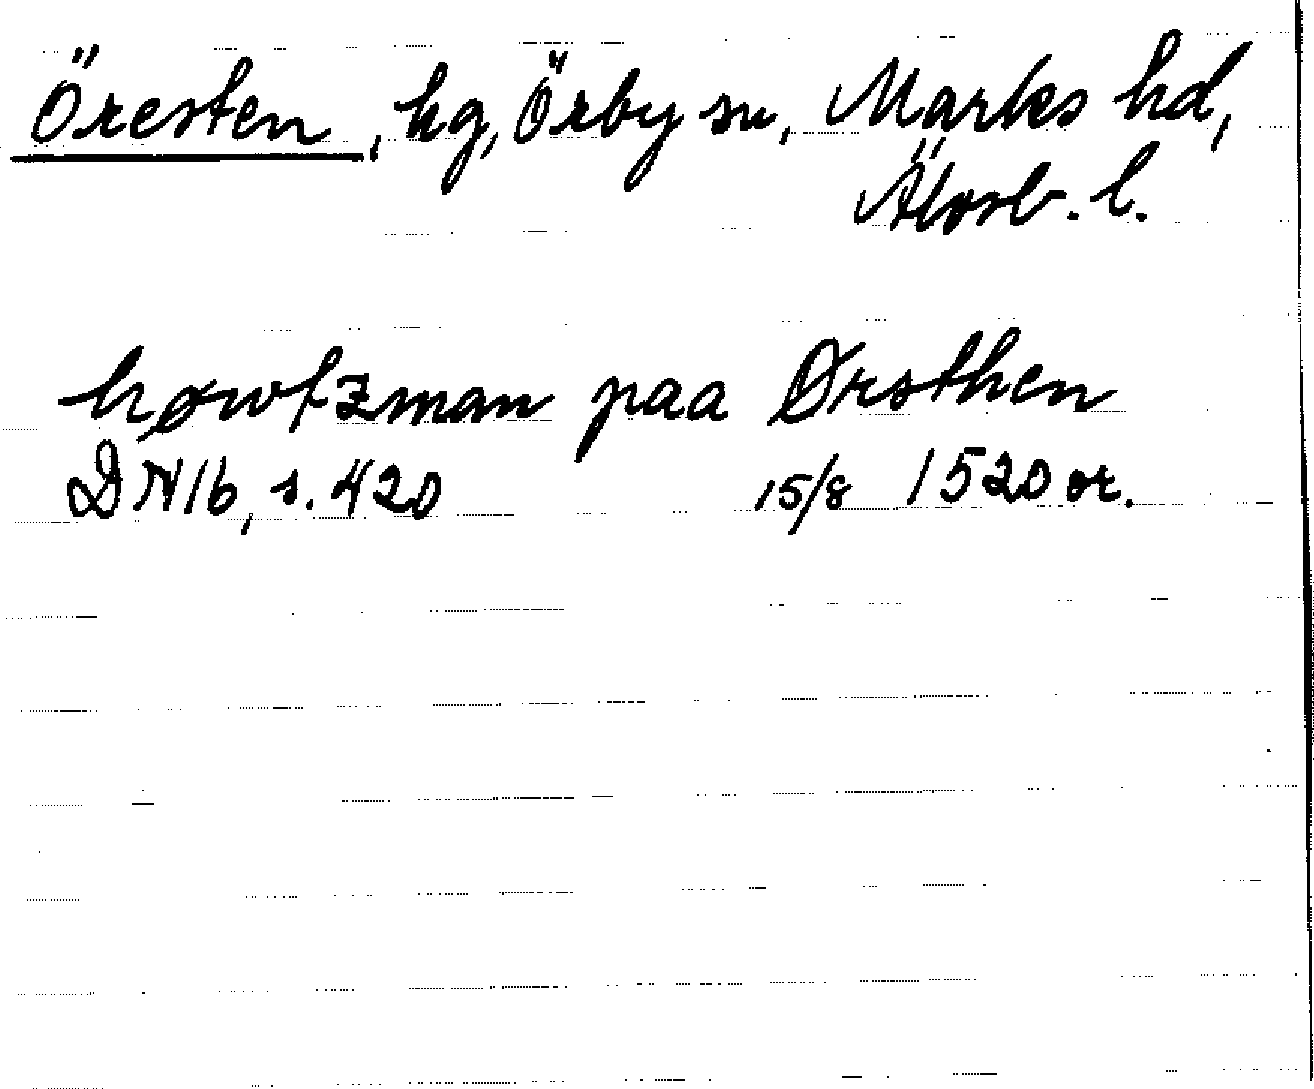 Öresten, hg, Örby sn, Marks hd,
Älvsb. l.
høwtzman paa Ørsthen
DN 16, s. 420 15/8 1520 or.